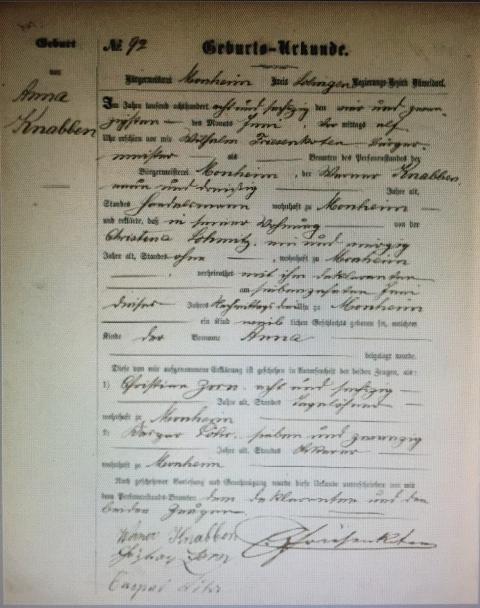 Geburt
von
Anna
Knabben
№ 92
Geburts-Urkunde.
Bürgermeisterei Monheim Kreis Solingen Regierungs-Bezirk Düsseldorf.
Im Jahre tausend achthundert acht und sechzig den vier und zwan-
zigsten des Monats Juni, Vor mittags elf
Uhr erschien vor mir Wilhelm Friesenkoten Bürger-
meister als Beamten des Personenstandes der
Bürgermeisterei Monheim, der Werner Knabben,
neun und dreißig Jahre alt,
Standes Handelsmann wohnhaft zu Monheim
und erklärte, daß in seiner Wohnung von der
Christina Schmitz, und vierzig
Jahre alt, Standes ohne, wohnhaft zu Monheim
, verheirathet mit ihm deklaranten
am siebenzehnten Juni
dieses Jahres Nachmittags zu Monheim
ein Kind weib lichen Geschlechts geboren sei, welchem
Kinde der Vorname Anna
beigelegt wurde.
Diese von mir aufgenommene Erklärung ist geschehen in Anwesenheit der beiden Zeugen, als:
1) Christian Zorn, acht und sechzig
Jahre alt, Standes Tagelöhner
wohnhaft zu Monheim
2) Caspar Löhr, sieben und zwanzig
Jahre alt, Standes Ackerer
wohnhaft zu Monheim
Nach geschehener Vorlesung und Genehmigung wurde diese Urkunde unterschrieben von mir
dem Personenstands-Beamten, dem deklaranten und den
beiden Zeugen
Werner Knabben
Zorn
Caspar Löhr